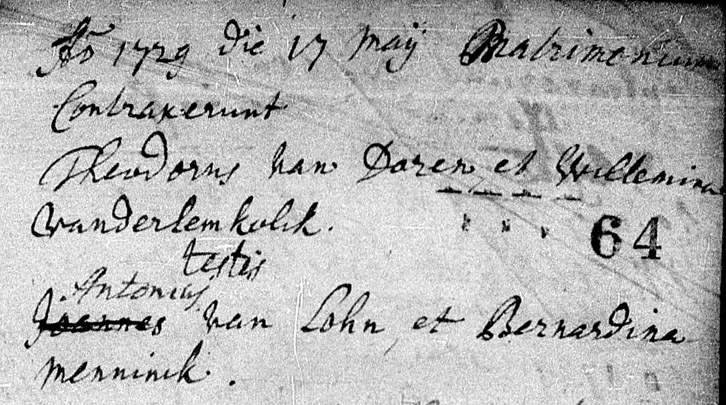 Aō 1729 die 17 maÿ Matrimonium
Contraxerunt
Theodorus van Doren et Willemina
vanderlemkolck.
testis
Antonius
Joannes van Lohn et Bernardina
menninck.
64